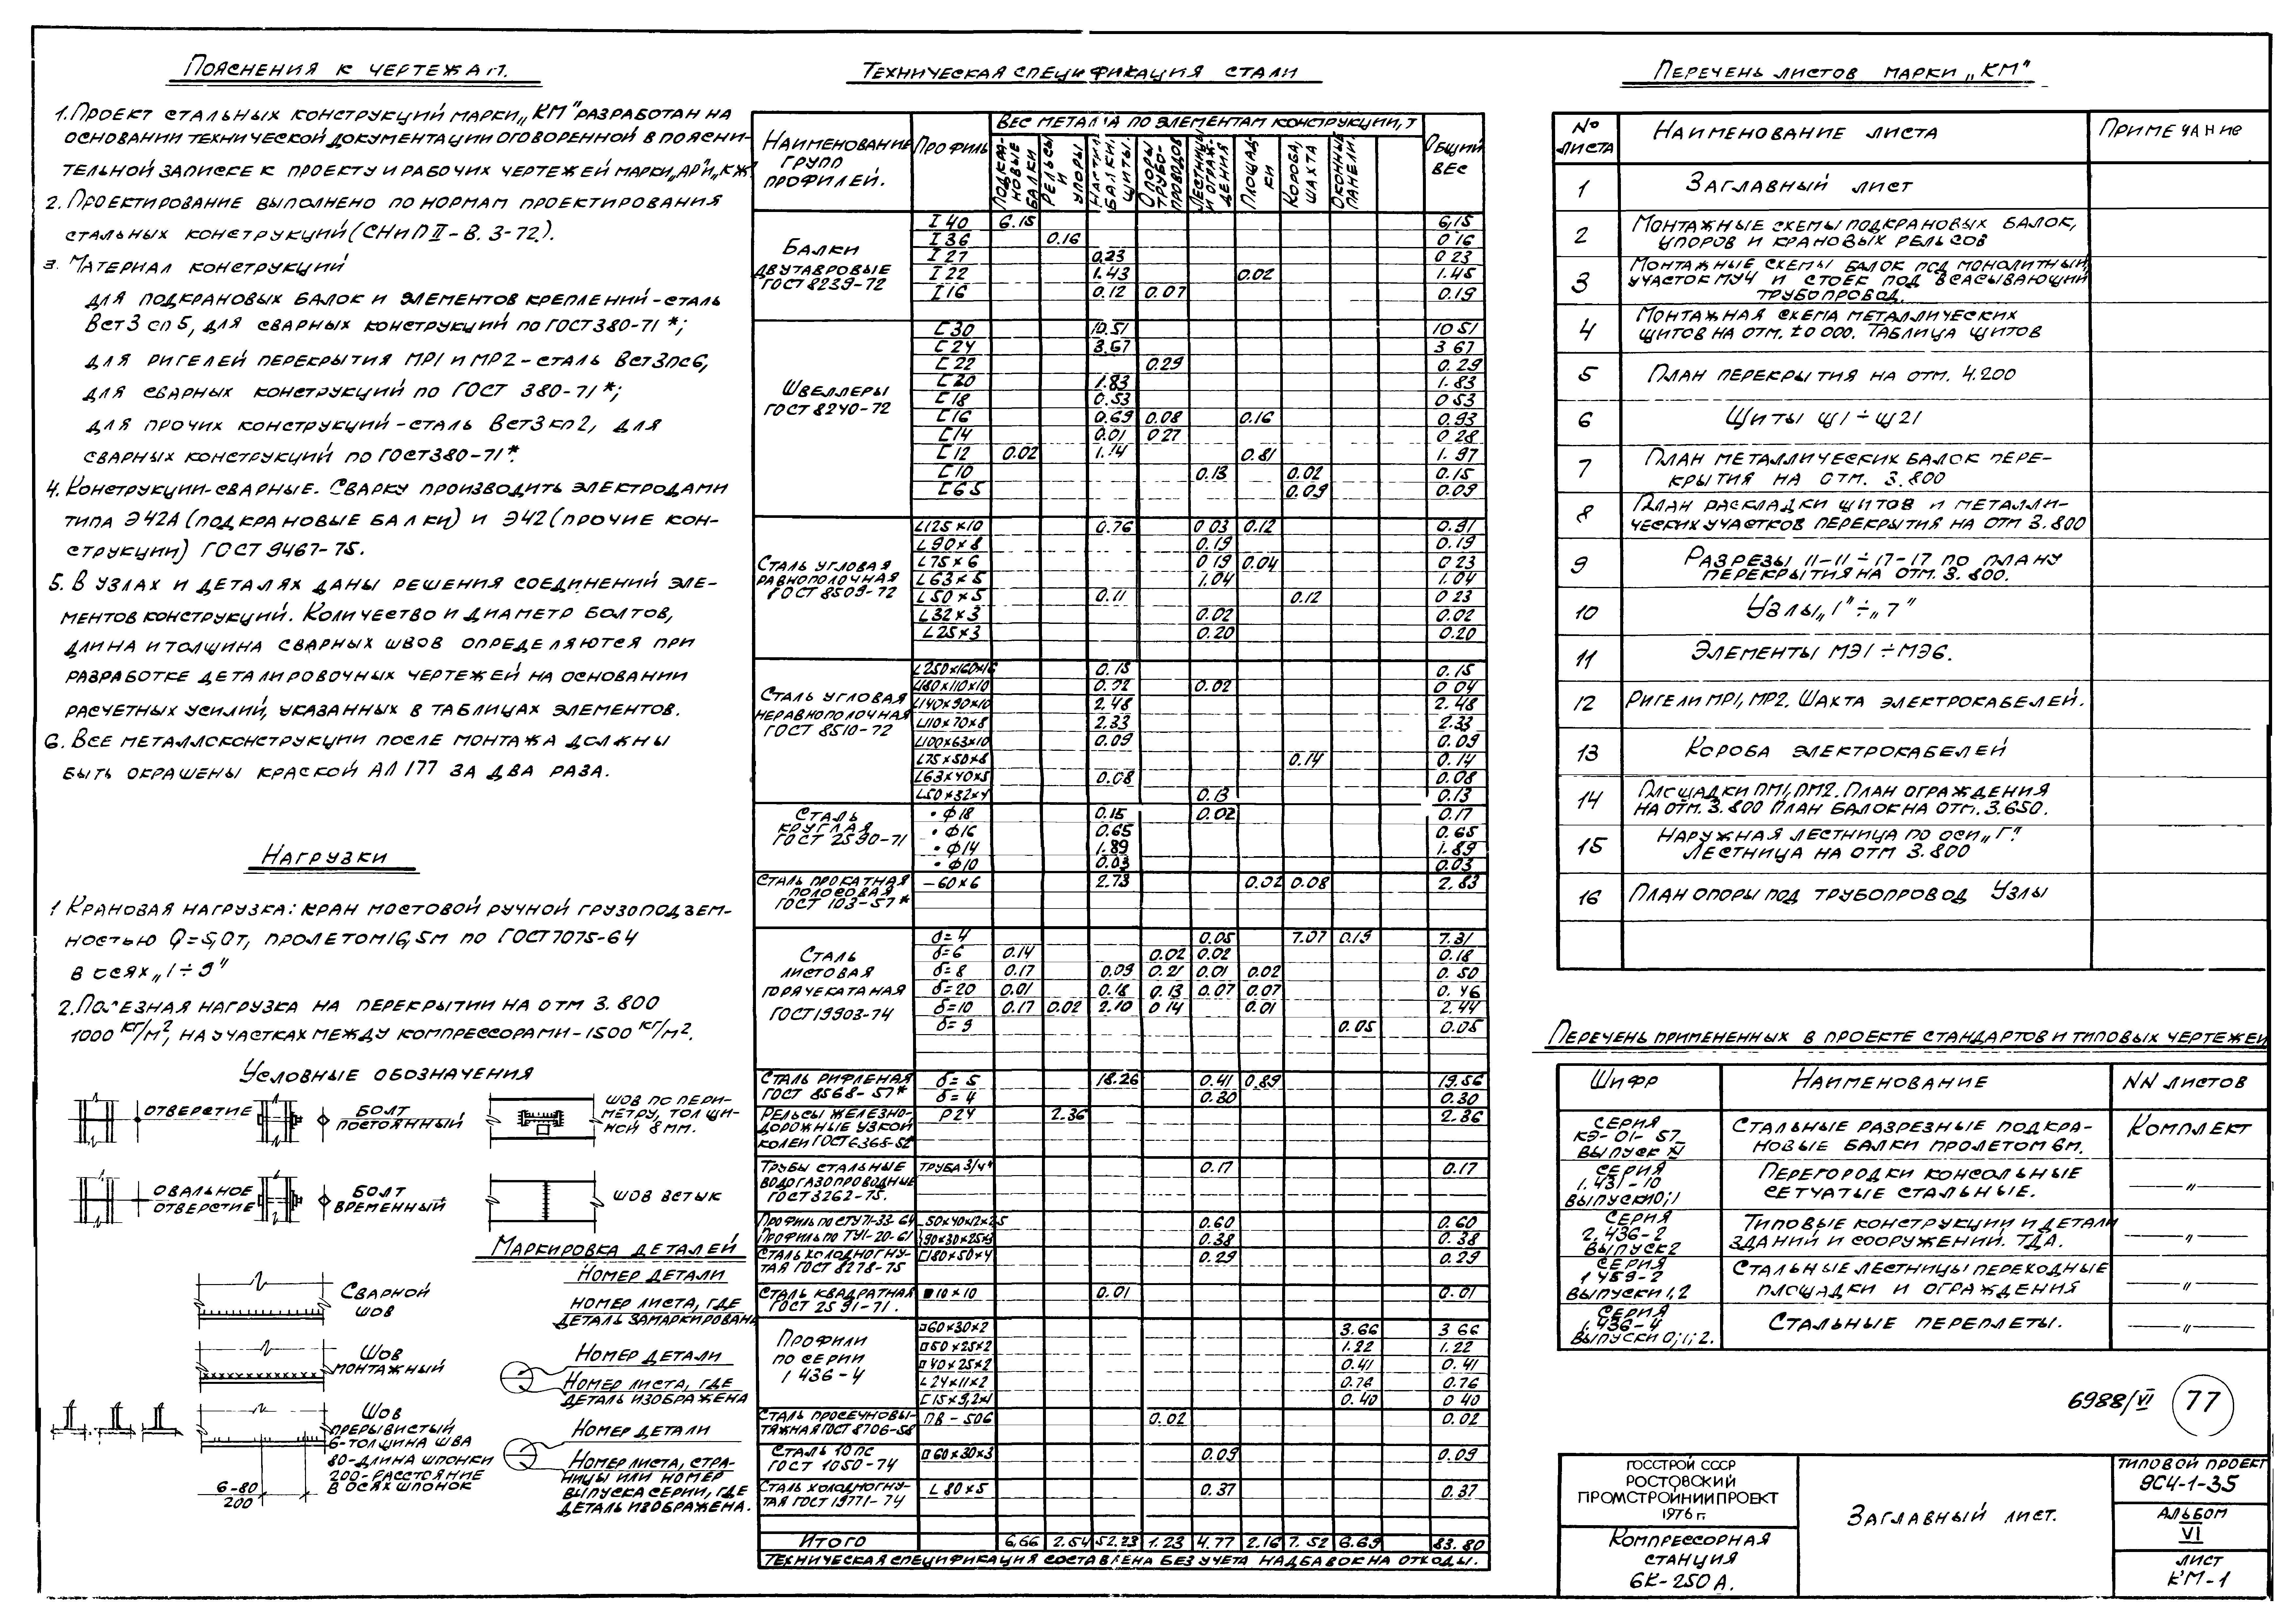 Пояснения к чертежам.
1. Проект стальных конструкций марки „КМ" разработан на
основании технической документации оговоренной в поясни-
тельной записке к проекту и рабочих чертежей марки „АР" и „КЖ"
2. Проектирование выполнено по нормам проектирования
стальных конструкций (СНиП II-В. 3-72).
3. Материал конструкций
для подкрановых балок и элементов креплений - сталь
Вст3сп5, для сварных конструкций по ГОСТ 380-71*;
для ригелей перекрытия МР1 и МР2 - сталь Вст3пс6,
для сварных конструкций по ГОСТ 380-71*;
для прочих конструкций - сталь Вст3кп2, для
сварных конструкций по ГОСТ 380-71*.
4. Конструкции - сварные. Сварку производить электродами
типа Э42А (подкрановые балки) и Э42 (прочие кон-
струкции) ГОСТ 9467-75.
5. В узлах и деталях даны решения соединений эле-
ментов конструкций. Количество и диаметр болтов,
длина и толщина сварных швов определяются при
разработке деталировочных чертежей на основании
расчетных усилий, указанных в таблицах элементов.
6. Все металлоконструкции после монтажа должны
быть окрашены краской АЛ 177 за два раза.
Нагрузки
1 Крановая нагрузка: кран мостовой ручной грузоподъем-
ностью Q=5,0т, пролетом 16,5м по ГОСТ 7075-64
в осях „1÷9"
2. Полезная нагрузка на перекрытии на отм 3.800
1000 кг/м², на участках между компрессорами - 1500 кг/м².
Условные обозначения
отверстие
болт постоянный
шов по пери-
метру, толщи-
ной 8 мм.
овальное отверстие
болт временный
шов встык
Сварной шов
Шов монтажный
Шов
прерывистый
6-толщина шва
80-длина шпонки
200-расстояние
в осях шпонок
6-80
200
Маркировка деталей
Номер детали
номер листа, где
деталь замаркирована
Номер детали
Номер листа, где
деталь изображена
Номер детали
Номер листа, стра-
ницы или номер
выпуска серии, где
деталь изображена.
Техническая спецификация стали
Наименование групп профилей.
Профиль
Вес металла по элементам конструкции, т
Подкрановые балки
Рельсы и упоры
Настил балки. щиты.
Опоры трубопроводов
Лестницы и ограждения
Площадки
Короба, шахта
Оконные панели.
Общий вес
Балки
двутавровые
ГОСТ 8239-72
I 40 6.15 6,15
I 36 0.16 0 16
I 27 0.23 0 23
I 22 1.43 0.02 1.45
I 16 0.12 0.07 0.19
Швеллеры
ГОСТ 8240-72
[ 30 10.51 10 51
[ 24 3.67 3 67
[ 22 0.29 0.29
[ 20 1.83 1.83
[ 18 0.53 0 53
[ 16 0.69 0.08 0.16 0.93
[ 14 0.01 0 27 0 28
[ 12 0.02 1.14 0.81 1.97
[ 10 0.13 0.02 0.15
[ 6 5 0.09 0.09
Сталь угловая
равнополочная
ГОСТ 8509-72
L125×10 0.76 0 03 0.12 0.91
L90×8 0.19 0.19
L75×6 0 19 0.04 0 23
L63×5 1.04 1.04
L50×5 0.11 0.12 0 23
L32×3 0.02 0.02
L25×3 0.20 0.20
Сталь угловая
неравнополочная
ГОСТ 8510-72
L250×160×16 0.15 0.15
L180×110×10 0.02 0.02 0 04
L140×90×10 2.48 2.48
L110×70×8 2.33 2.33
L100×63×10 0.09 0.09
L75×50×8 0.14 0.14
L63×40×5 0.08 0.08
L50×32×4 0.13 0.13
Сталь
круглая
ГОСТ 2590-71
• ф18 0.15 0.02 0.17
• ф16 0.65 0.65
• ф14 1.89 1.89
• ф10 0.03 0.03
Сталь прокатная
полосовая
ГОСТ 103-57*
-60×6 2.73 0.02 0.08 2.83
Сталь
листовая
горячекатаная
ГОСТ 19903-74
δ=4 0.05 7.07 0.19 7.31
δ=6 0.14 0.02 0.02 0.18
δ=8 0.17 0.09 0.21 0.01 0.02 0.50
δ=20 0.01 0.18 0.13 0.07 0.07 0.46
δ=10 0.17 0.02 2.10 0 14 0.01 2.44
δ=9 0.05 0.05
Сталь рифленая
ГОСТ 8568-57*
δ=5 18.26 0.41 0.89 19.56
δ=4 0.30 0.30
Рельсы железно-
дорожные узкой
колеи ГОСТ 6368-52
Р24 2.36 2.36
Трубы стальные
водогазопроводные
ГОСТ 3262-75.
труба 3/4" 0.17 0.17
Профиль по СТУ 71-33-64 50×40×12×2.5 0.60 0.60
Профиль по ТУ1-20-61 90×30×25×3 0.38 0.38
Сталь холодногну-
тая ГОСТ 8278-75
[180×50×4 0.29 0.29
Сталь квадратная
ГОСТ 2591-71.
■10×10 0.01 0.01
Профили
по серии
1 436-4
□60×30×2 3.66 3 66
□50×25×2 1.22 1.22
□40×25×2 0.41 0.41
L24×11×2 0.76 0.76
[15×9,2×1 0.40 0 40
Сталь просечновы-
тяжная ГОСТ 8706-58
ПВ-506 0.02 0.02
Сталь 10 пс
ГОСТ 1050-74
□60×30×3 0.09 0.09
Сталь холодногну-
тая ГОСТ 19771-74
L 80×5 0.37 0.37
Итого 6,66 2.54 52.23 1.23 4.77 2.16 7.52 6.69 83.80
Техническая спецификация составлена без учета надбавок на отходы.
Перечень листов марки „КМ"
№ листа Наименование листа Примечание
1 Заглавный лист
2 Монтажные схемы подкрановых балок,
упоров и крановых рельсов
3 Монтажные схемы балок под монолитный
участок МУ4 и стоек под всасывающий
трубопровод.
4 Монтажная схема металлических
щитов на отм. ±0 000. Таблица щитов
5 План перекрытия на отм. 4.200
6 Щиты Щ1÷Щ21
7 План металлических балок пере-
крытия на отм. 3.800
8 План раскладки щитов и металли-
ческих участков перекрытия на отм 3.800
9 Разрезы 11-11÷17-17 по плану
перекрытия на отм. 3.800.
10 Узлы „1"÷„7"
11 Элементы МЭ1÷МЭ6.
12 Ригели МР1, МР2. Шахта электрокабелей.
13 Короба электрокабелей
14 Площадки ПМ1, ПМ2. План ограждения
на отм. 3.800 План балок на отм. 3.650.
15 Наружная лестница по оси „Г".
Лестница на отм 3.800
16 План опоры под трубопровод Узлы
Перечень примененных в проекте стандартов и типовых чертежей
Шифр Наименование NN листов
серия
КЭ-01-57
выпуск IV
Стальные разрезные подкра-
новые балки пролетом 6м.
Комплект
серия
1.431-10
выпуски 0;1
Перегородки консольные
сетчатые стальные.
—〃—
серия
2.436-2
выпуск 2
Типовые конструкции и детали
зданий и сооружений. ТДА.
—〃—
серия
1 459-2
выпуски 1,2
Стальные лестницы переходные
площадки и ограждения
—〃—
серия
1.436-4
выпуски 0;1;2.
Стальные переплеты.
—〃—
6988/VI 77
ГОССТРОЙ СССР
РОСТОВСКИЙ
ПРОМСТРОЙНИИПРОЕКТ
1976 г.
Компрессорная
станция
6К-250А.
Заглавный лист.
Типовой проект
904-1-35
Альбом
VI
лист
КМ-1